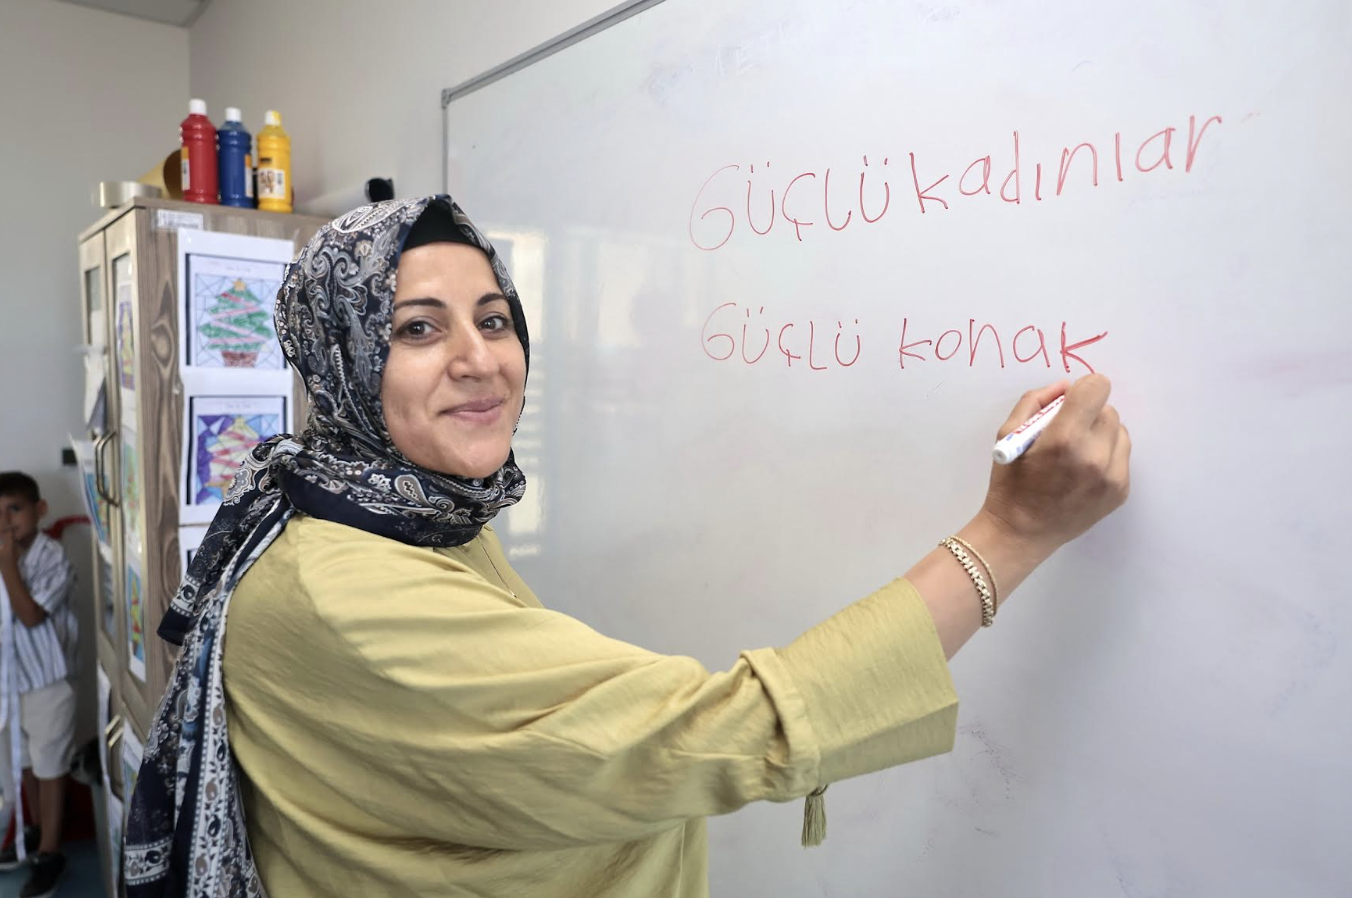 Güçlü kadınlar
Güçlü konak